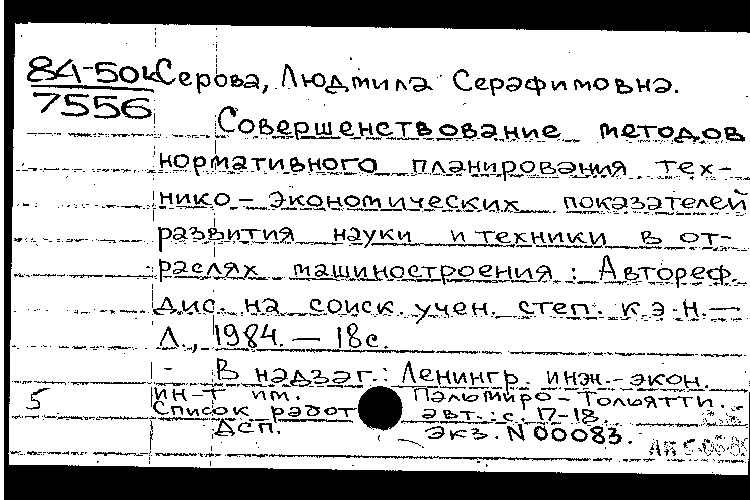 84-50к Серова, Людмила Серафимовна.
7556
Совершенствование методов
нормативного планирования тех-
нико-экономических показателей
развития науки и техники в от-
раслях машиностроения: Автореф.
дис. на соиск. учен. степ. к.э.н. —
Л., 1984. — 18с.
- В надзаг.: Ленингр. инж.-экон.
ин-т им. Пальмиро-Тольятти.
5 Список работ авт.: с. 17-18.
Дсп. Экз. N 00083.